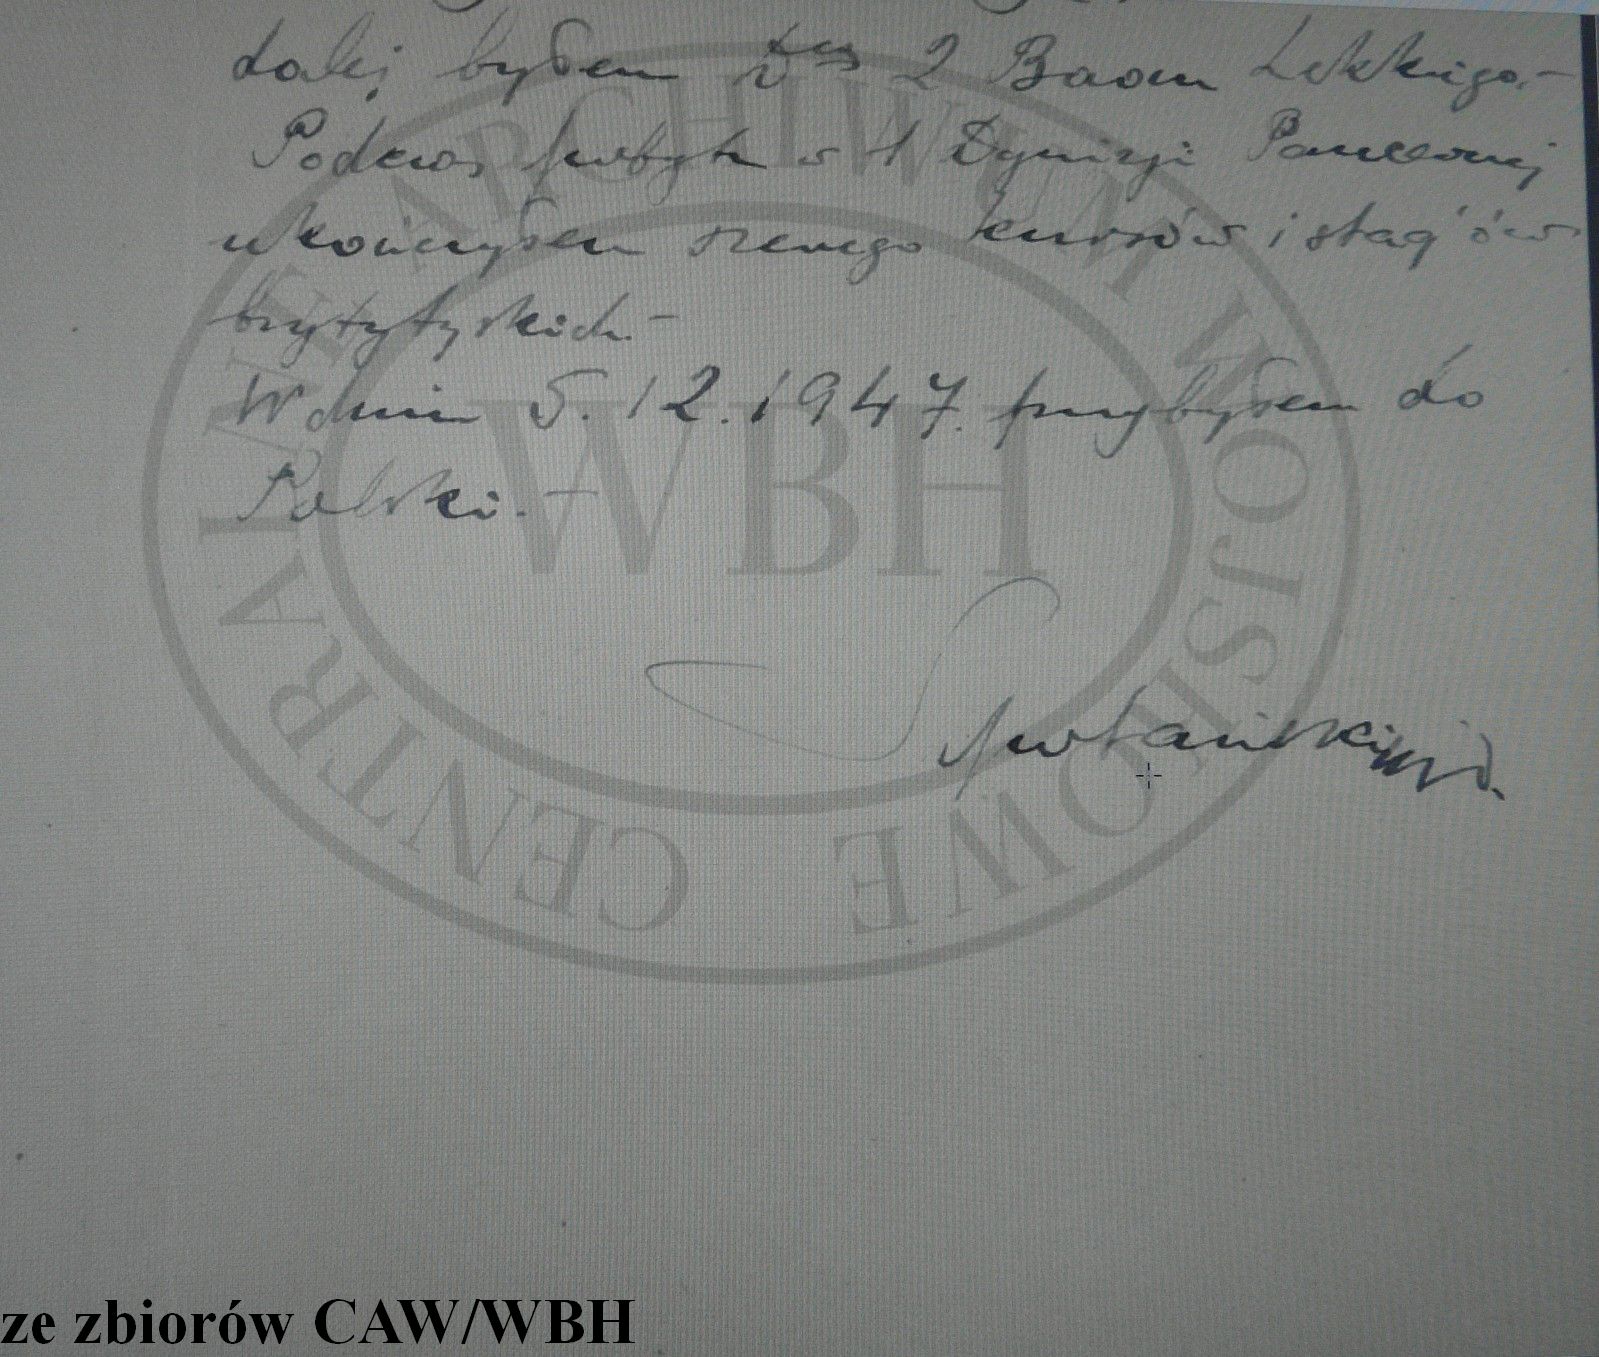 dalej byłem 2 Baonu Lekkiego.-
Podczas pobytu w 1 Dywizji Pancernej
ukończyłem szereg kursów i stag'ów
brytyjskich.-
W dniu 5.12.1947. przybyłem do
Polski.-
CENTRALNE ARCHIWUM WOJSKOWE
WBH
ze zbiorów CAW/WBH